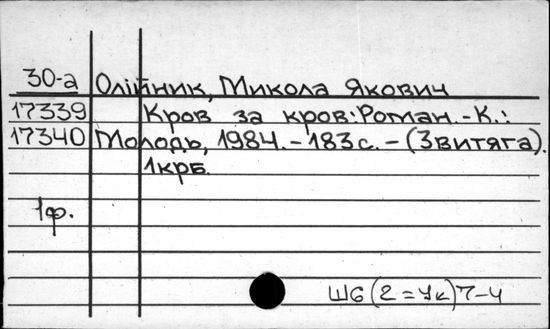 30-а Олійник, Микола Якович
17339 Кров за кров: Роман. - К.:
17340 Молодь, 1984. - 183 с. - (Звитяга).
1крб.
1ф.
Ш6(2=Ук)7-4